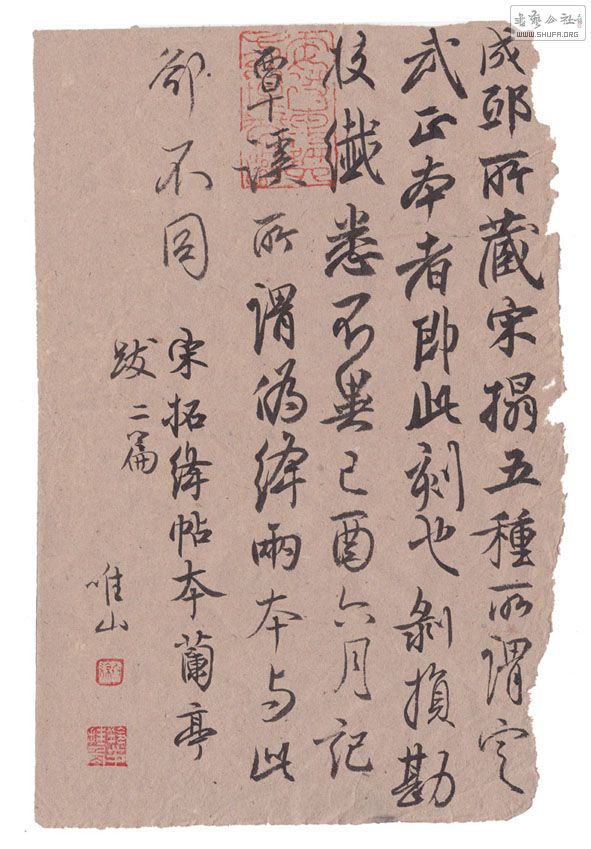 成邸所藏宋搨五種所謂定
武正本者即此刻也剝損勘
校纖悉不異己酉六月記
覃溪所謂偽絳兩本与此
卻不同
宋拓绛帖本蘭亭
跋二篇
唯山
書藝公社
WWW.SHUFA.ORG